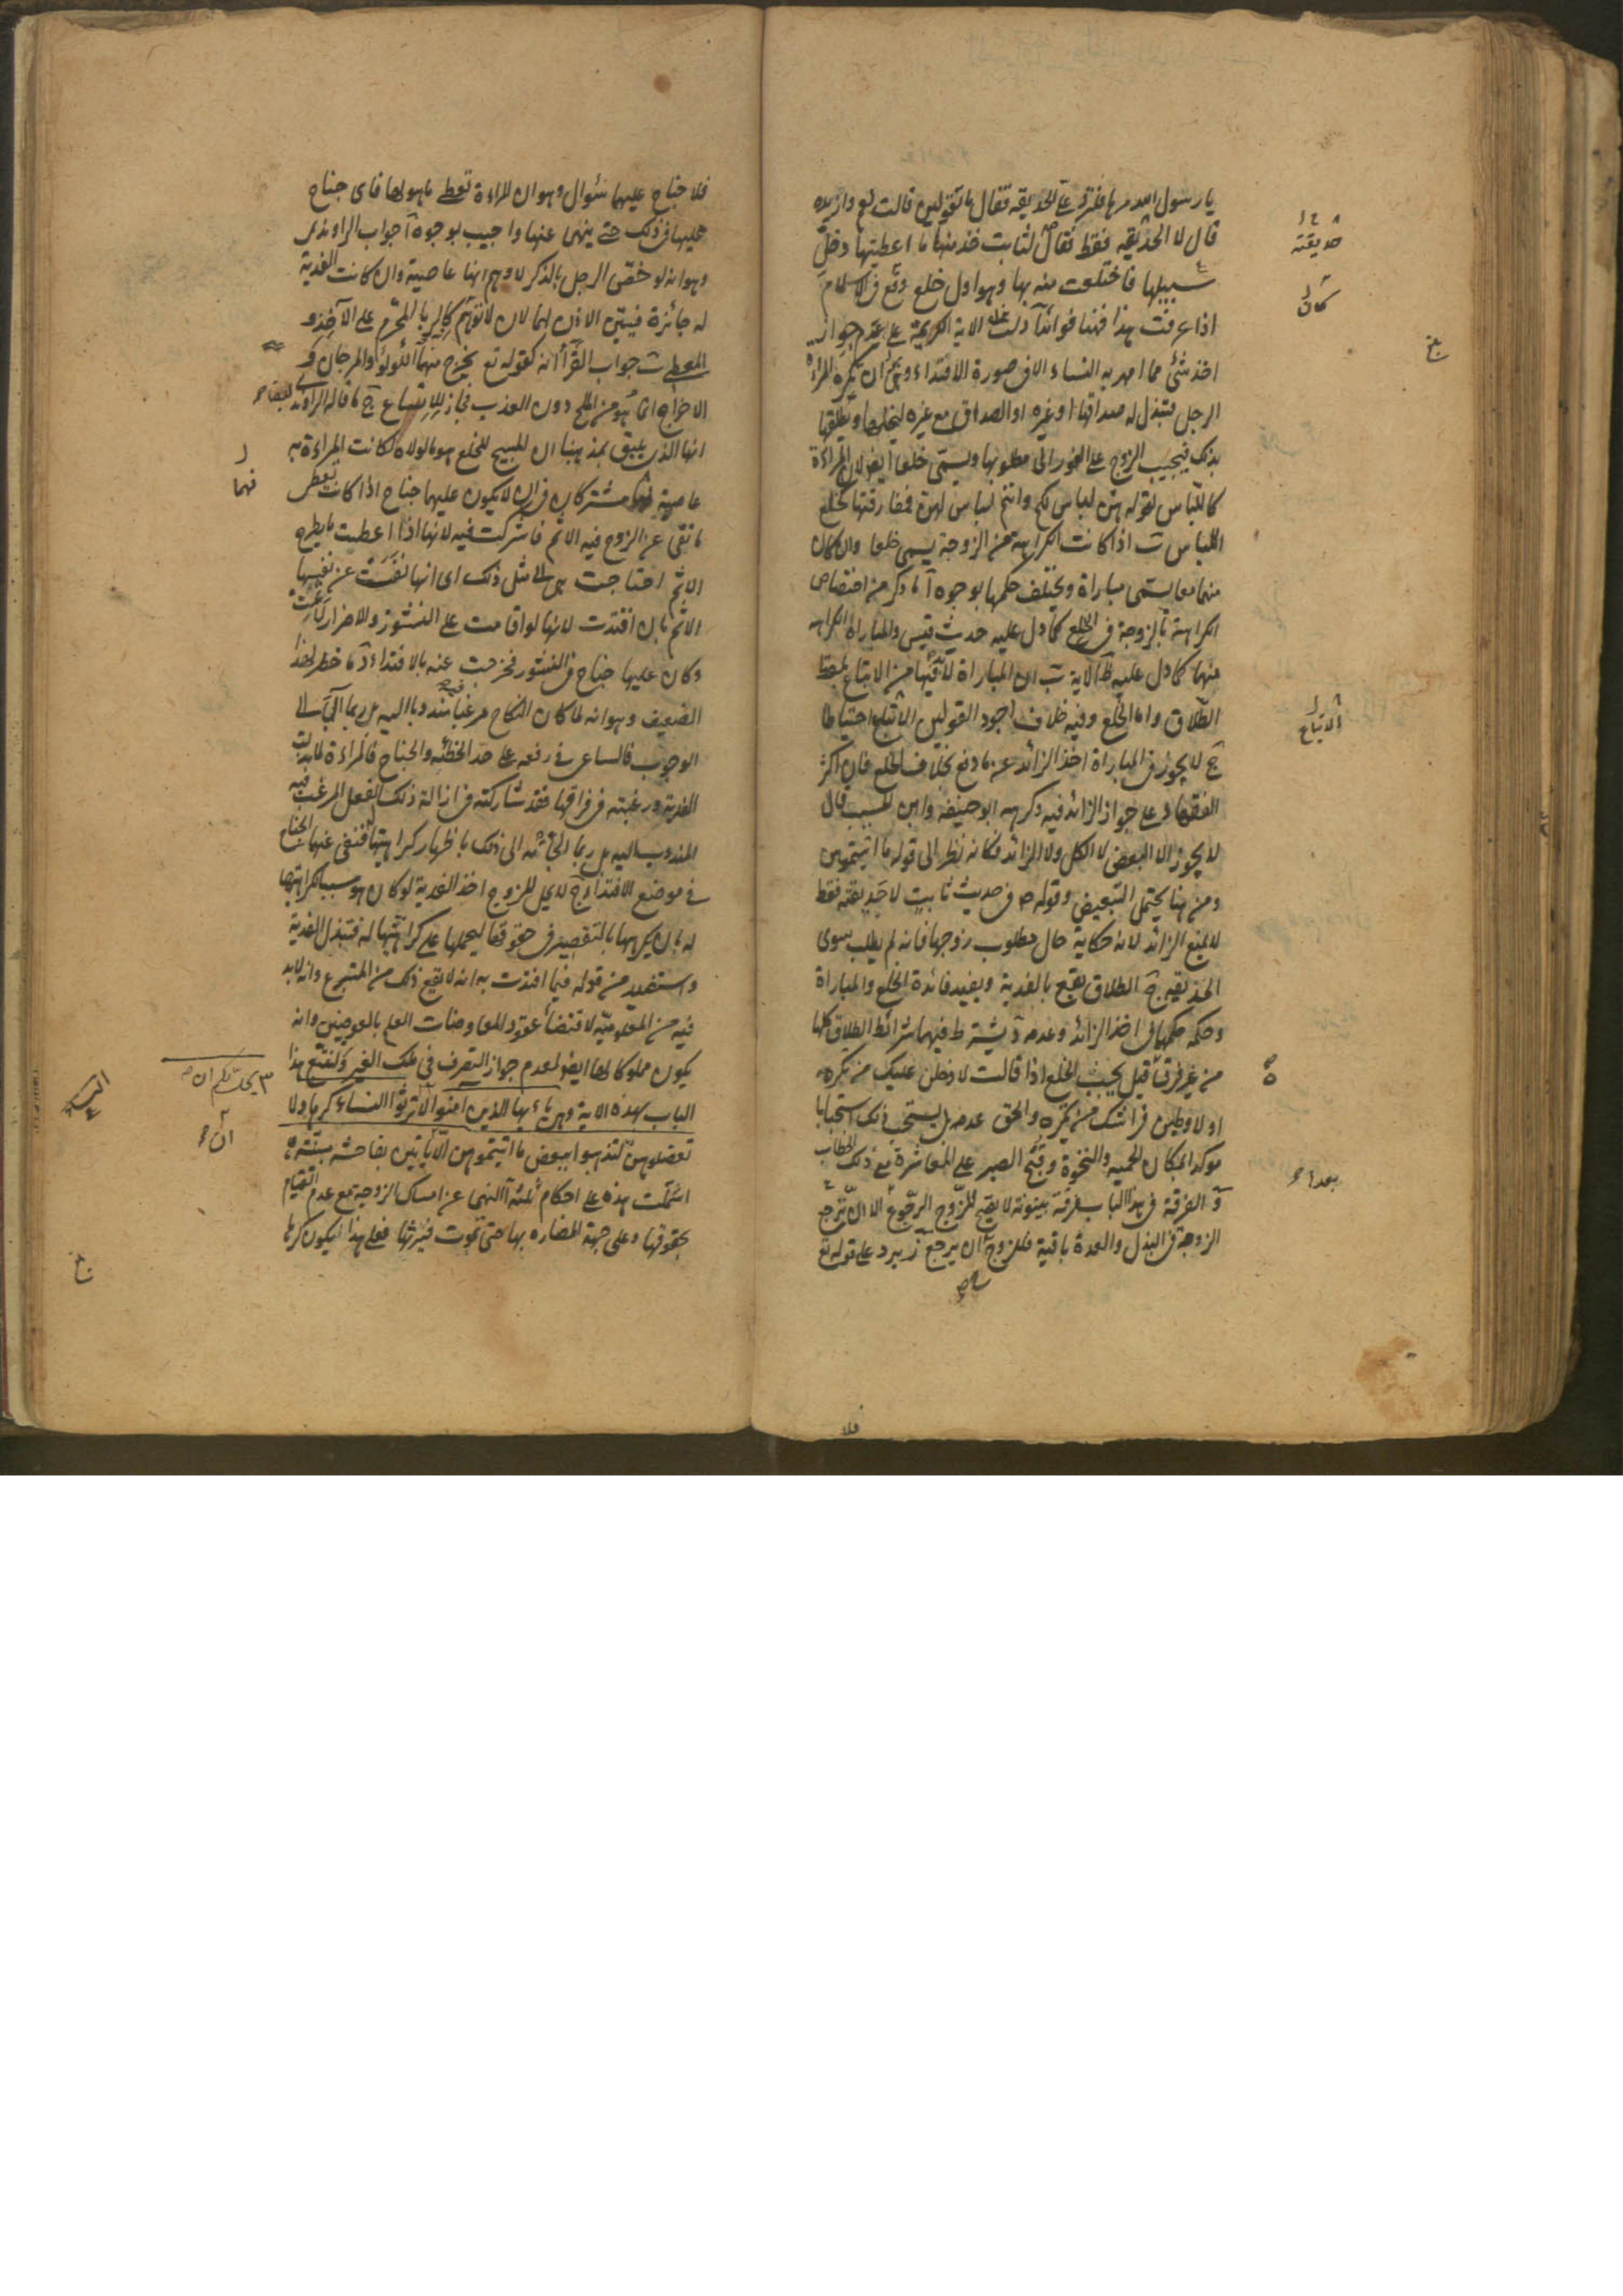 يا رسول الله مرها فلترد على الحديقه فقال ما تقولين قالت نعم وازيده
قال لا الحديقه فقط فقال لثابت خذ منها ما اعطيتها وخل
سبيلها فاختلعت منه بها وهو اول خلع وقع فى الاسلام
اذا عرفت هذا فهنا فوائد آ دلت الاية الكريمة على عدم جواز
اخذ شئ مما امهر به النساء الا فى صورة الافتداء وهى ان تكره المراة
الرجل فتبذل له صداقها او غيره او الصداق مع غيره ليخلعها ويطلقها
بذلك فيجيب الزوج على الفور الى مطلوبها ويسمى خلعا ايضا لان المراءة
كاللباس لقوله هن لباس لكم وانتم لباس لهن ففارقتها كخلع
اللباس ب اذا كانت الكراهة من الزوجة يسمى خلعا وان كان
منهما معا يسمى مباراة ويختلف حكمها بوجوه آ ما ذكر من اختصاص
الكراهة بالزوجة فى الخلع كما دل عليه حديث قيس والمباراة الكراهه
منهما كما دل عليه ظ الاية ب ان المباراة لابد فيها من الاتباع بلفظ
الطلاق واما الخلع وفيه خلاف اجود القولين الاتباع احتياطا
ج لا يجوز فى المباراة اخذ الزائد عن ما دفع بخلاف الخلع فان اكثر
الفقهاء على جواز الزائد فيه وكرهه ابو حنيفه وابن المسيب قال
لا يجوز الا البعض لا الكل ولا الزائد فكانه نظر الى قوله مما اتيتموهن
ومن هنا يحتمل التبعيض وقوله ص فى حديث ثابت لا حديقته فقط
لا يمنع الزائد لانه حكاية حال مطلوب زوجها فانه لم يطلب سوى
الحديقه ج الطلاق يقع بالفدية ويفيد فائدة الخلع والمباراة
وحكمه حكمها فى اخذ الزائد وعدمه د يشترط فيهما شرائط الطلاق كلها
من غير فرق قيل يجب الخلع اذا قالت لادخلن عليك من تكرهه
او لاوطين فراشك من تكره والحق عدمه بل يستحب ذلك استحبابا
موكدا لمكان الحميه والنخوة وقبح الصبر على المعاشرة مع ذلك الخطاب
و الفرقة فى هذا الباب فرقة بينونة لا يقع للزوج الرجوع الا ان ترجع
الزوجة فى البذل والعدة باقية فللزوج ان يرجع ز يرد على قوله تع
فلا
حديقته
كان
بلغ
الاتباع
بعد
فلا جناح عليهما سئوال وهو ان المراءة تعطى ما هو لها فاى جناح
عليها فى ذلك حتى ينهى عنها واجيب بوجوه آ جواب الراوندى
وهو انه لو خصّ الرجل بالذكر لاوهم انها عاصية وان كانت الفدية
له جائزة فبين الاذن لهما لان لا توهم كالربا المحرم على الآخذ و
المعطى ب جواب القرآ انه كقوله تع يخرج منهما اللولو والمرجان و
الاخراج انما هو من الملح دون العذب فجاز للاتساع ج ما قاله الراوندى
انها الذى يليق بمذهبنا ان المبيح للخلع هو ما لولاه لكانت المراءة به
عاصية مشتركان فى ان لا يكون عليهما جناح اذا كانت تعطى
ما نفى عن الزوج فيه الاثم فاشتركت فيه لانها اذا اعطيت ما يطرح
الاثم احتاجت هى الى مثل ذلك اى انها نفت عن نفسها
الاثم بان افتدت لانها لو اقامت على النشوز والاضرار لاثمت
وكان عليها جناح فى النشوز فخرجت عنه بالافتداء د ما خطر لهذا
الضعيف وهو انه لما كان النكاح مرغبا مندوبا اليه بل ربما آل الى
الوجوب فالساعى فى رفعه على حد الخطئه والجناح فالمراءة لما بذلت
الفدية ورغبته فى فراقها فقد شاركته فى ازالة ذلك الفعل المرغب فيه
المندوب اليه بل ربما الجأته الى ذلك باظهار كراهيتها فنفى عنها الجناح
فى موضع الافتداء ج لا يحل للزوج اخذ الفدية لو كان هو سبب كراهيتها
له بان يكرهها بالتقصير فى حقوقها ليحملها على كراهتها له فتبذل الفدية
واستفيد من قوله فيما افتدت به انه لا يقع ذلك من المتبرع وانه لا بد
فيه من المعلومية لاقتضاء عقود المعاوضات العلم بالعوضين وانه
يكون مملوكا لها ايضا لعدم جواز التصرف فى ملك الغير ولنتبع هذا
الباب بهذه الاية وهى يا ايها الذين امنوا لا ترثوا النساء كرها ولا
تعضلوهن لتذهبوا ببعض ما اتيتموهن الا ان ياتين بفاحشة مبينة
اشتملت هذه على احكام ثلثه آ النهى عن امساك الزوجة مع عدم القيام
بحقوقها وعلى جهة المضاره بها حتى تموت فيرثها فعلى هذا يكون كرها
فهما
يحل لكم ان